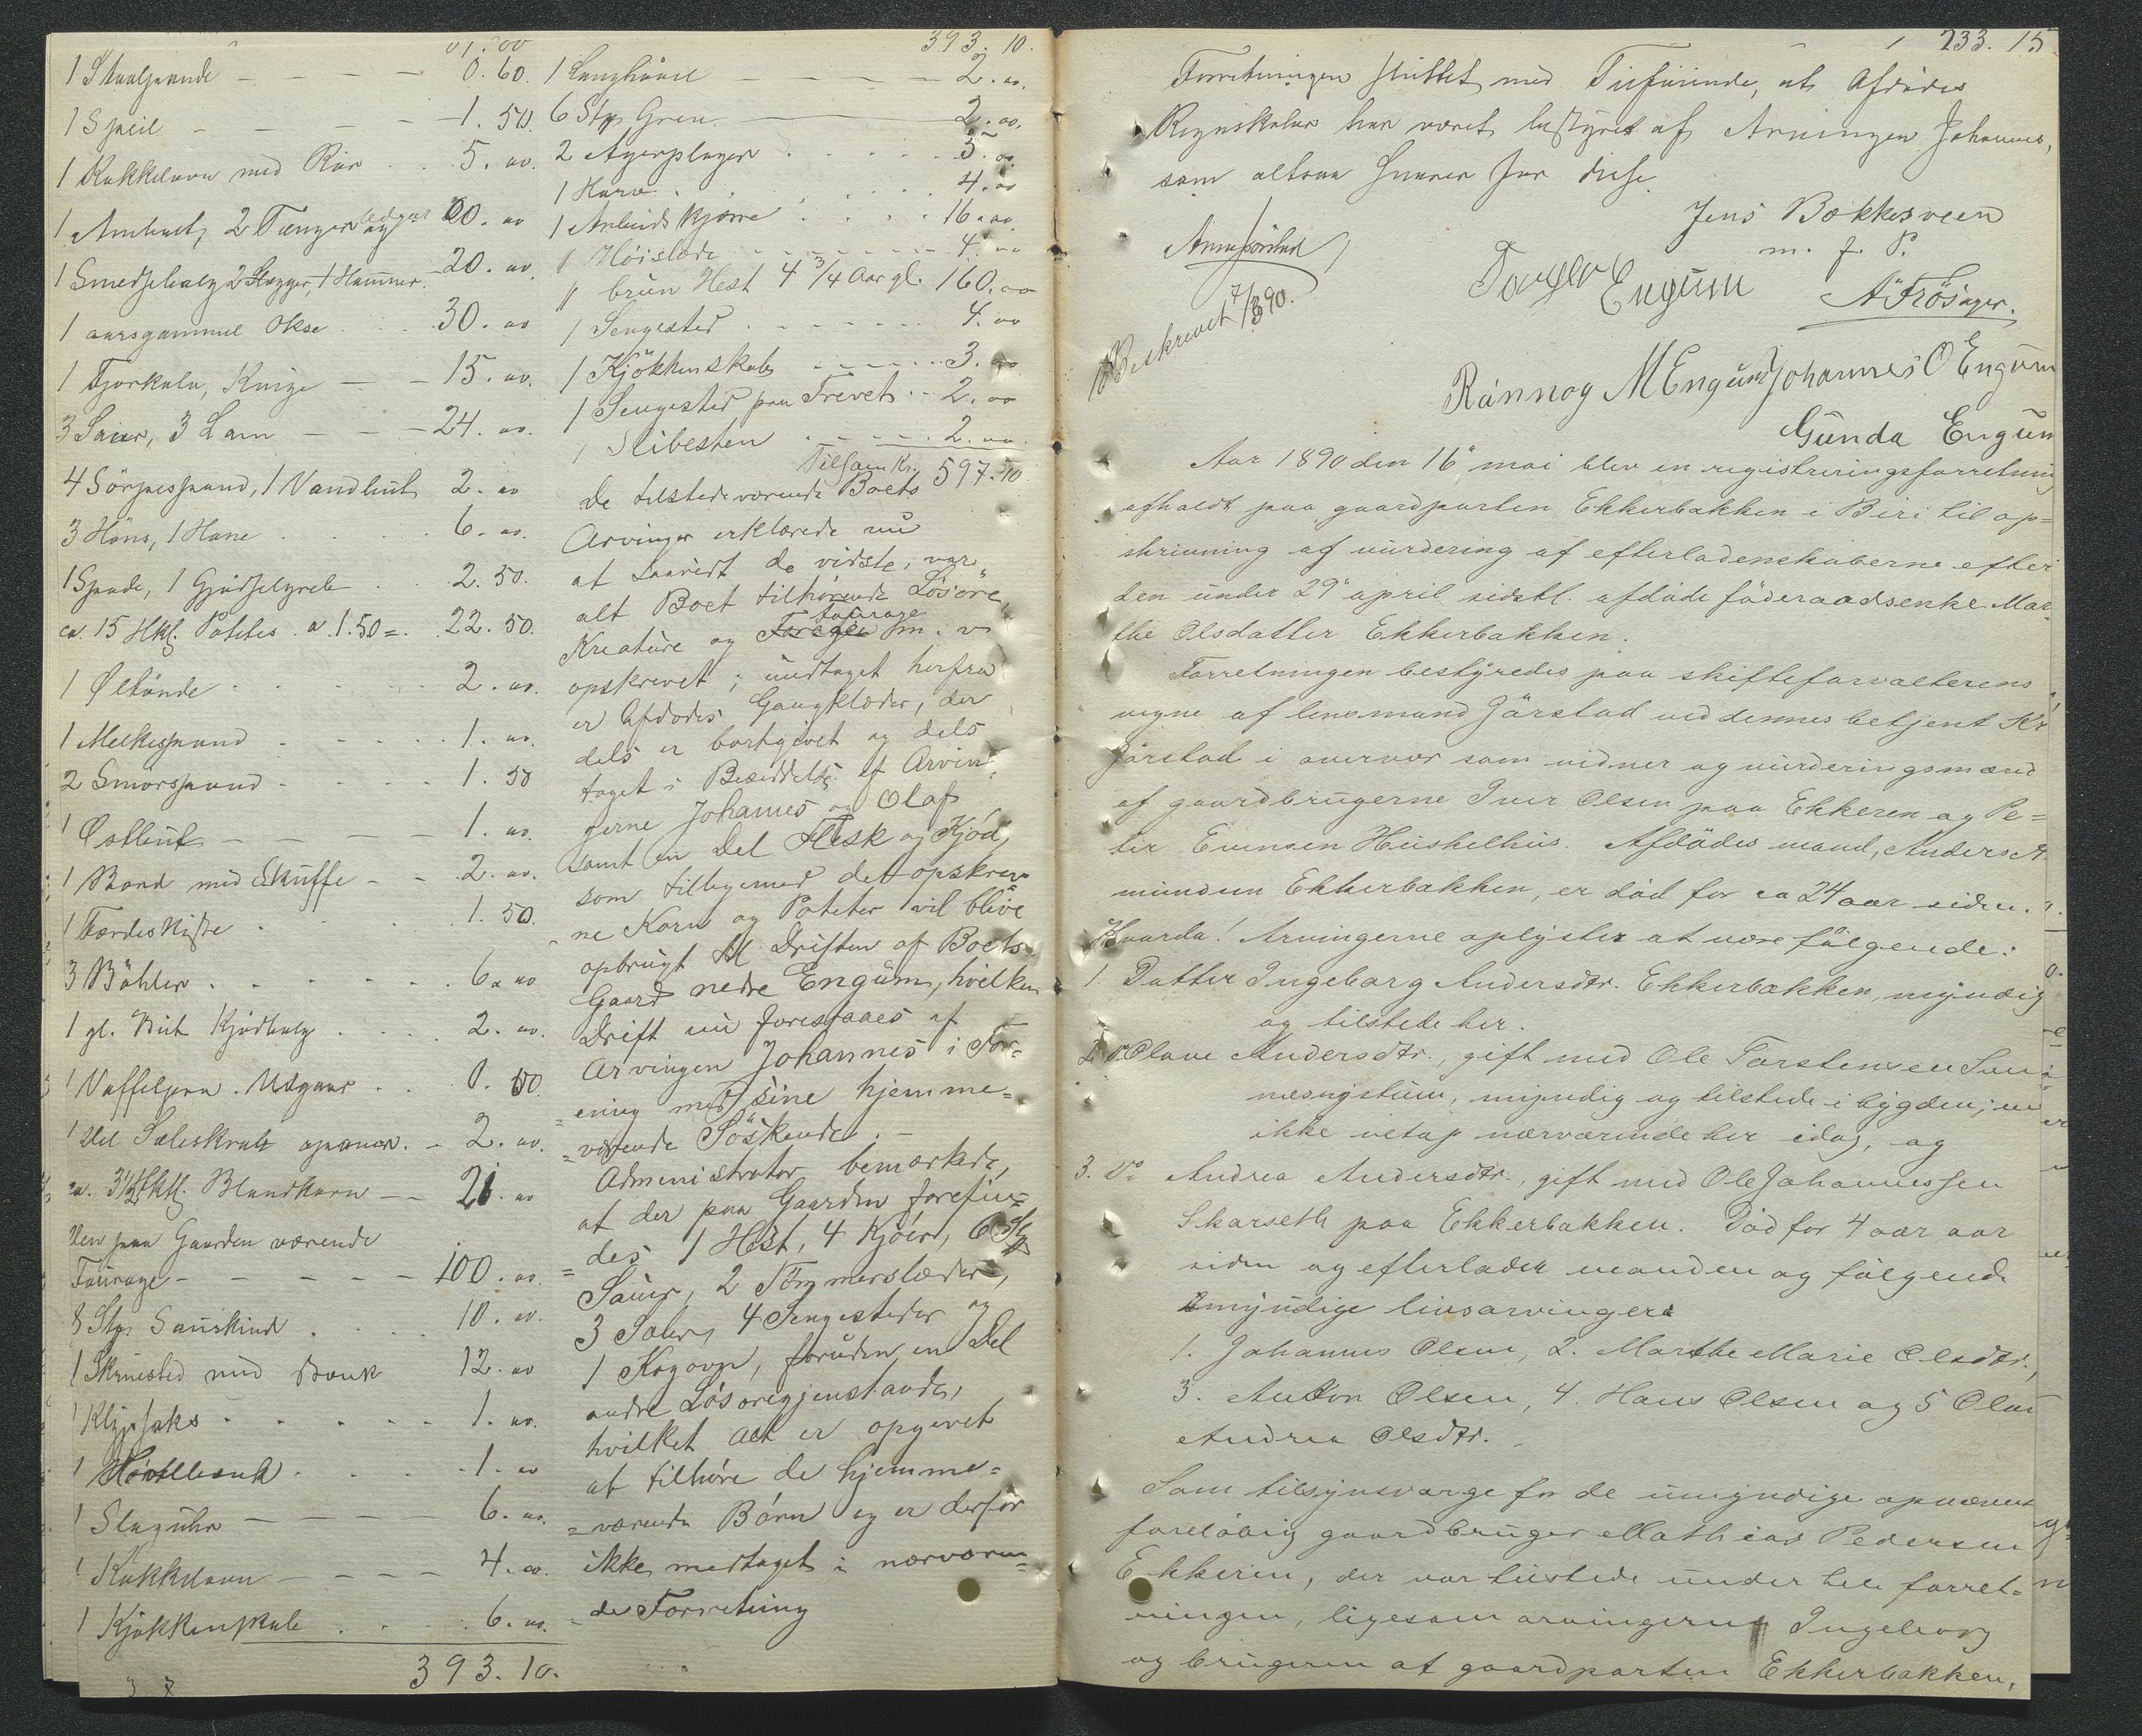 1 Speil - - - - 1. 50.
1 Kakkelovn med Rör . . 5. oo.
1 Ambolt, 2 Tænger og
1 Smedjebælg 2 Slægger, 1 Hammer. 20. oo.
1 aarsgammel Okse . . . 30. oo
1 Fjorkalv, Kvige - - 15. oo.
3 Sauer, 3 Lam - - - 24. oo.
4 Sörpespand, 1 Vandbut 2. oo
3 Höns, 1 Hane . . . . 6. oo.
1 Spade, 1 Gjödselgreb . . 2. 50.
ca. 15 Hkl. Potetes a 1.50 = . 22. 50.
1 Øltönde . . . . . 2. oo.
1 Melkespand . . . . 1. oo.
2 Smörspand - . . . 1. 50
1 Ostbut - - - - 1. oo.
1 Bord med Skuffe - - 2. oo.
1 Færdeskiste . . . 1. 50.
3 Böhler . . . . . 6. oo
1 gl. Kjödbalg . . . 2. oo.
1 Vaffeljern . . 0. 50
1 Del Seleskrab 2. oo.
ca. 3½ Hktl. Blandkorn - - 21. oo
Den paa Gaarden værende
Fourage - - - - - 100. oo.
8 Stk Sauskind . . . . 10. oo.
1 med Bænk 12. oo
1 Klipsaks . . . . . 1. oo.
1 Hövelbænk . . . . 1. oo
1 Slaguhr - - - - 6. oo.
1 Kakkelovn - - - - 4. oo.
1 Kjökkenskab . . . 6. oo.
393. 10.
393. 10.
1 Langhövel - - - - 2. oo.
6 Stk Gren 2. oo.
2 Agerploger . . . . . 5. oo.
1 Harv . . . . . 4. oo
1 Arbeidskjærre . . . . 16. oo.
1 Höislæde - - - - 4. oo
1 brun Hest 4 3/4 Aar gl. 160. oo
1 Sengested . . . . . 4. oo
1 Kjökkenskab . . . . . 3. oo
1 Sengested paa Trevet . . 2. oo
1 Slibesten . . . . . 2. oo.
Tilsam Kr. 597. 10
De tilstedeværende Boets
Arvinger erklærede nu
at saavidt de vidste, var
alt Boet tilhörende Lösöre,
fourage
Kreature og m. v
opskrevet; undtaget herfra
er Afdødes Gangklæder, der
dels er bortgivet og dels
taget i Besiddelse af Arvin-
gerne Johannes og Olaf
samt en Del Flesk og Kjöd,
som tilligemed det opskrev-
ne Korn og Poteter vil blive
opbrugt til Driften af Boets
Gaard nedre Engum, hvilken
Drift nu forestaaes af
Arvingen Johannes i For-
ening med sine hjemme-
=værende Söskende. -
Administrator bemærkede,
at der paa Gaarden forefin-
=des 1 Hest, 4 Kjöer, 6 Stk
Sauer, 2 Tömmerslæder,
3 Seler, 4 Sengesteder og
1 Kogovn, foruden en Del
andre Lösöregjenstande,
hvilket Alt er opgivet
at tilhöre de hjemme-
=værende Börn og er derfor
ikke medtaget i nærværen-
=de Forretning
233. 15
Forretningen sluttet med Tilföiende, at Afdödes
Regnskaber har været bestyret af Arvingen Johannes,
som altsaa svarer for disse.
Jens Bækkesveen
m. f. P.
Engum
Beskrevet 7/8 90.
Rännog M Engum Johannes O Engum
Günda Engum
Aar 1890 den 16" mai blev en registreringsforretning
afholdt paa gaardparten Ekkerbakken i Biri til op-
skrivning og vurdering af efterladenskaberne efter
den under 29" april sidstl. afdöde föderaadsenke Mar-
the Olsdatter Ekkerbakken.
Forretningen bestyredes paa skifteforvalterens
vegne af lensmand Jörstad ved dennes betjent Kr
Jörstad i overvær som vidner og vurderingsmænd
af gaardbrugerne Iver Olsen paa Ekkeren og Pe-
ter Evensen Huskelhus. Afdödes mand, Anders A-
mundsen Ekkerbakken, er död for ca 24 aar siden.
Arvingerne oplystes at være fölgende:
1. Datter Ingeborg Andersdtr. Ekkerbakken, myndig
og tilstede her.
2. do. Olave Andersdtr., gift med Ole Torstensen
myndig og tilstede i bygden, men
ikke netop nærværende her idag, og
3. do. Andrea Andersdtr., gift med Ole Johannessen
Skarseth paa Ekkerbakken. Död for 4 aar
siden og efterlader manden og fölgende
umyndige livsarvinger:
1. Johannes Olsen, 2. Marthe Marie Olsdtr.,
3. Anton Olsen, 4. Hans Olsen og 5 Olav
Andrea Olsdtr.
Som tilsynsværge for de umyndige opnævnt
foreløbig gaardbruger Mathias Pedersen
Ekkeren, der var tilstede under hele forret-
ningen, ligesom arvingerne Ingeborg
og brugeren af gaardparten Ekkerbakken,